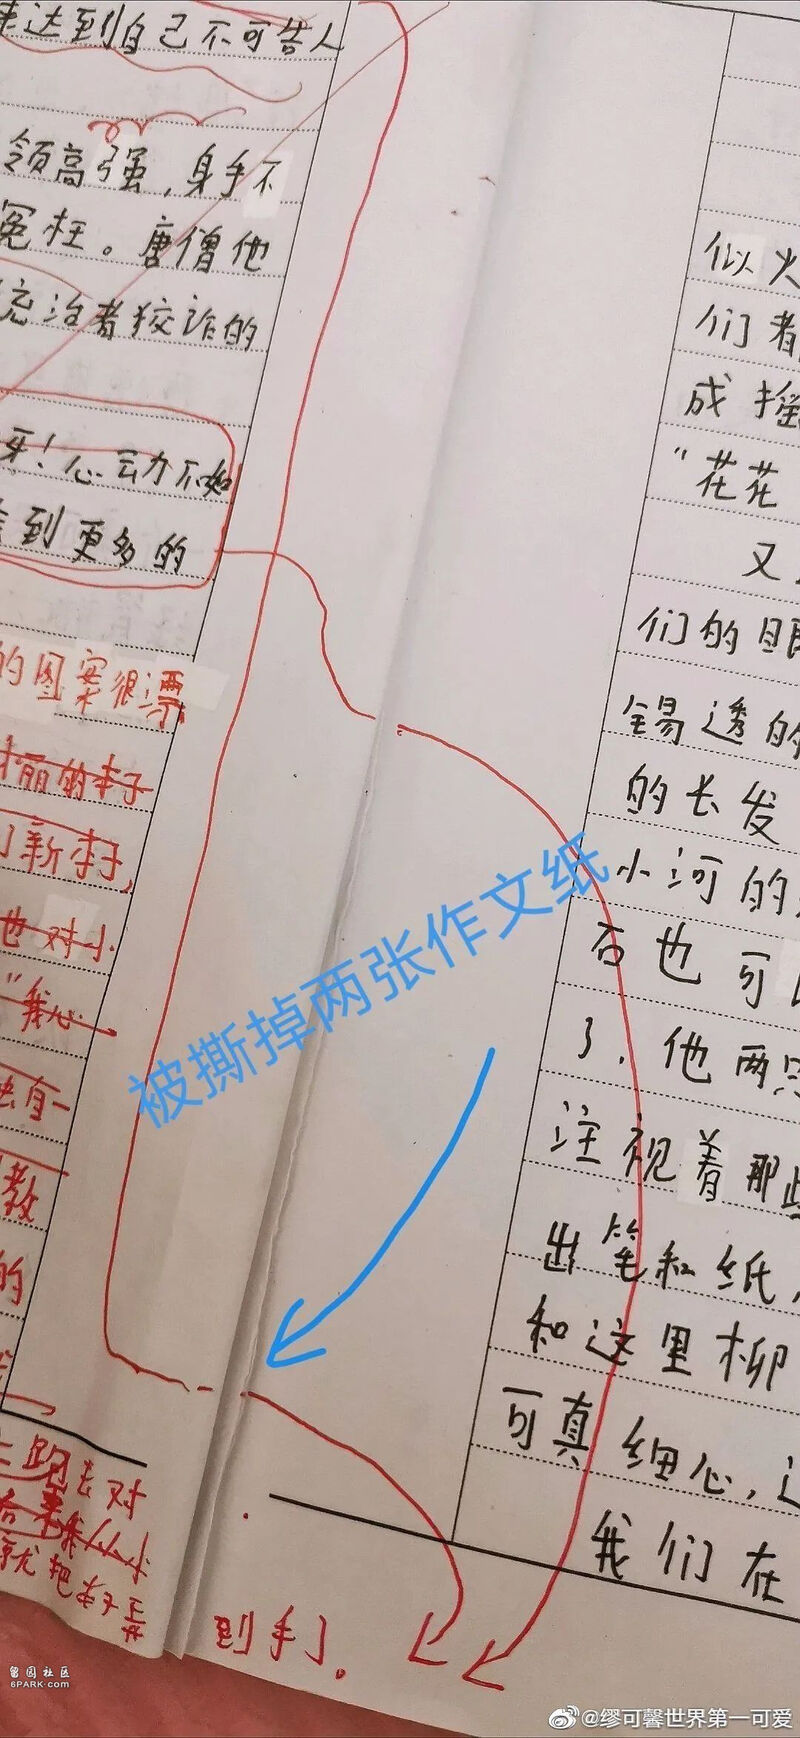 达到自己不可告人
领高强，身手不
冤枉。唐僧他
统治者狡诈的
牙！心动不如
到更多的
的图案很漂
丽的李子
新李子，
也对小
"我心
教
的
跑去对
就把李子弄
到手了。
被撕掉两张作文纸
似火
们看
成摇
"花花
又
们的眼
锡透的
的长发
小河的
石也可
了，他两只
注视着那些
出笔和纸，
和这里柳
可真细心，这
我们在
留园社区
6PARK.com
@缪可馨世界第一可爱